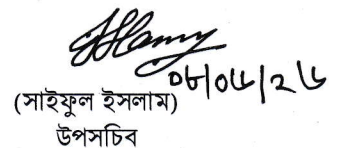 ০৮/০৬/২৬
(সাইফুল ইসলাম)
উপসচিব